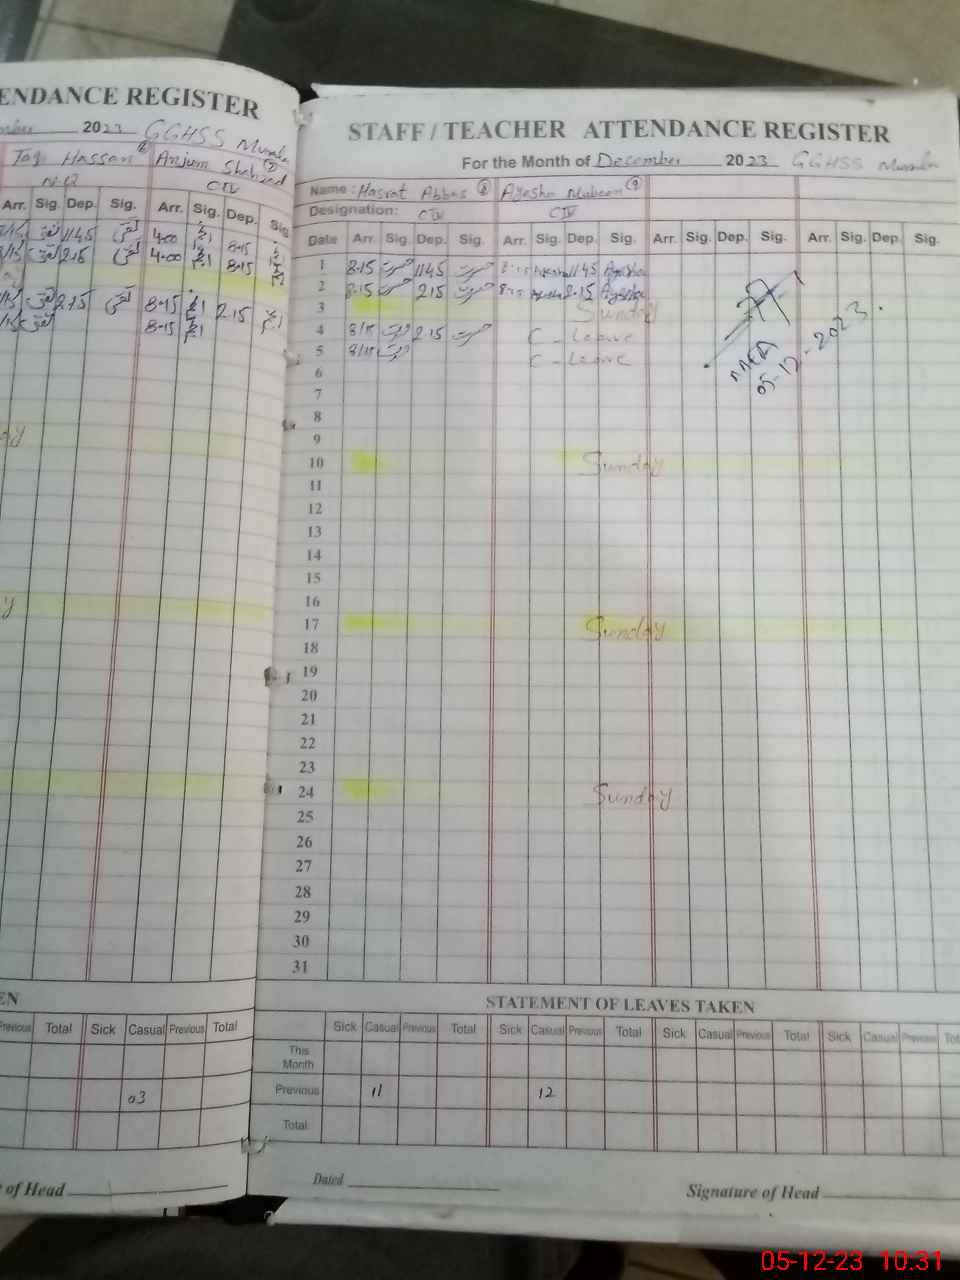 ENDANCE REGISTER
2023 GGHSS
Taj Hassan Anjum Shahzad
CIV
Arr. Sig. Dep. Sig. Arr. Sig. Dep. Sig.
1145 4.00 8.15
215 4.00 8.15
215 8.15 2.15
8.15
EN
Previous Total Sick Casual Previous Total
03
e of Head
STAFF / TEACHER ATTENDANCE REGISTER
For the Month of December 2023 GGHSS
Name : Hasrat Abbas Ayesha Mubeen
Designation: CIV CIV
Date Arr. Sig. Dep. Sig. Arr. Sig. Dep. Sig. Arr. Sig. Dep. Sig. Arr. Sig. Dep. Sig.
1 8.15 حسرت 1145 حسرت 8.15 Ayesha 1145 Ayesha
2 8.15 حسرت 215 حسرت 8.15 Ayesha 2.15 Ayesha
3 Sunday
4 8/15 حسرت 2.15 حسرت C - Leave
5 8/15 حسرت C - Leave
MEA
05-12-2023.
6
7
8
9
10 Sunday
11
12
13
14
15
16
17 Sunday
18
19
20
21
22
23
24 Sunday
25
26
27
28
29
30
31
STATEMENT OF LEAVES TAKEN
Sick Casual Previous Total Sick Casual Previous Total Sick Casual Previous Total Sick Casual Previous Tot
This Month
Previous 11 12
Total
Dated
Signature of Head
05-12-23 10:31